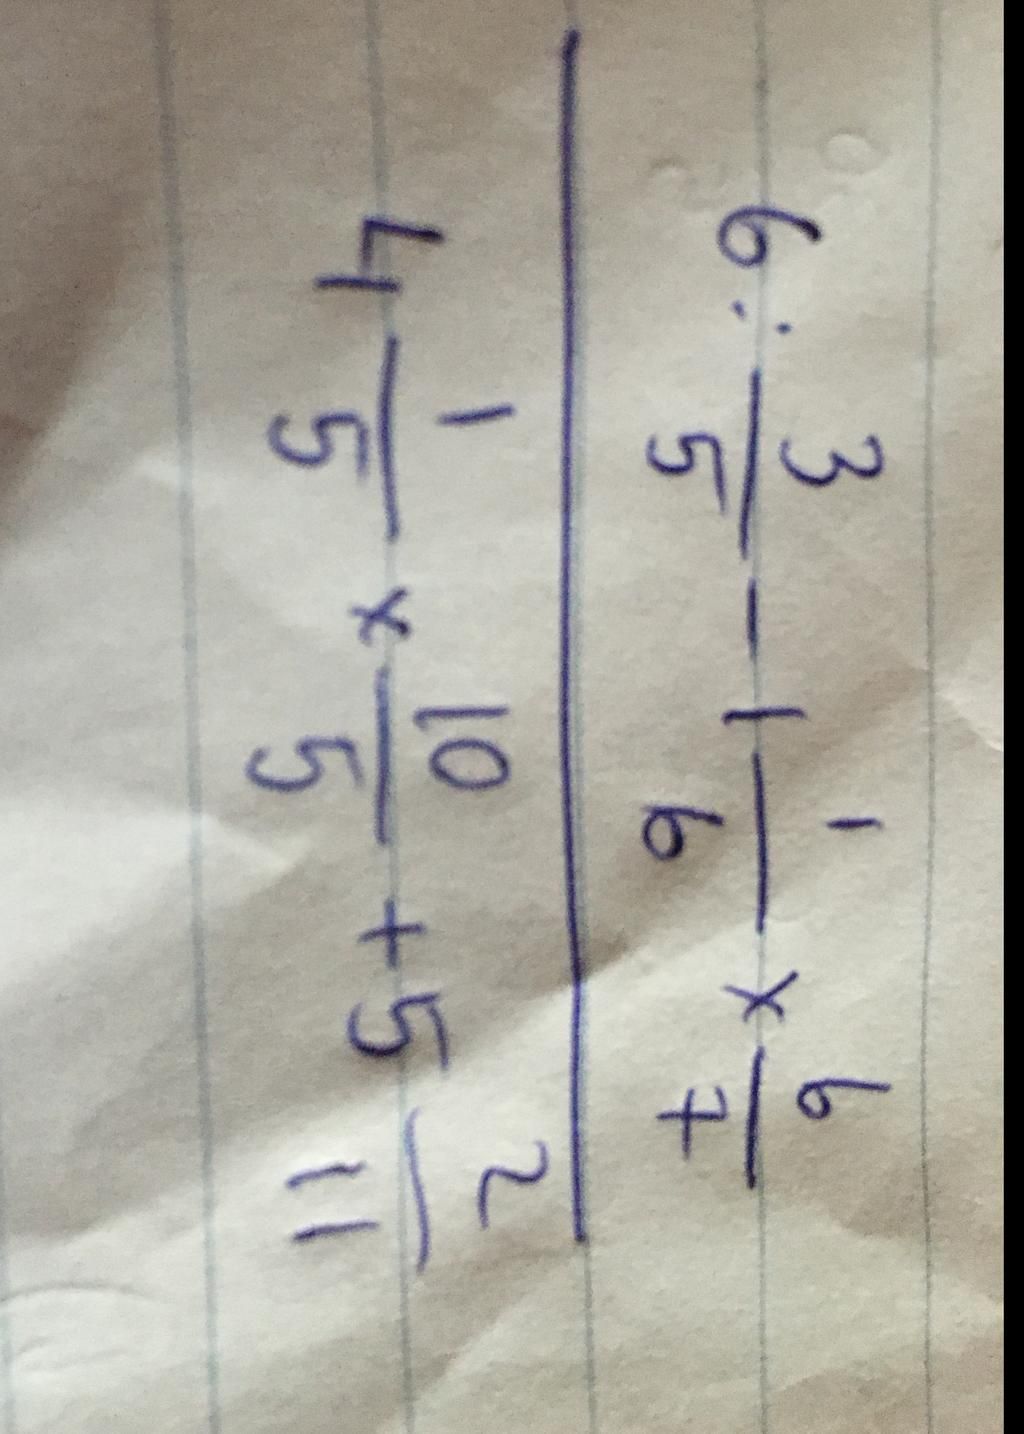 6 : 3/5 - 1 1/6 x 6/7
4 1/5 x 10/5 + 5 2/11